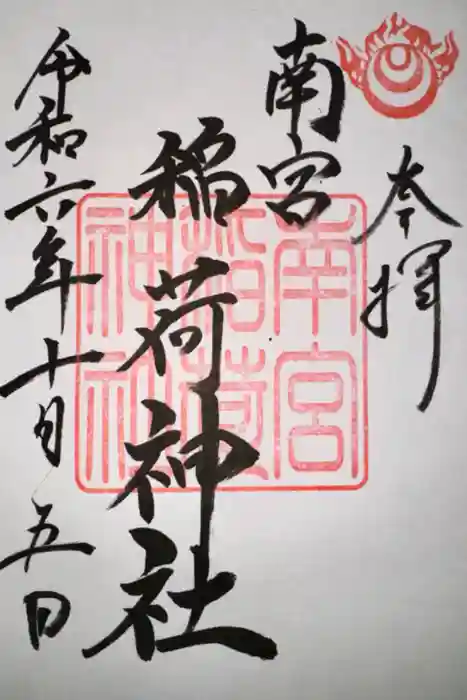 奉拝
南宮
稲荷神社
令和六年十月五日
南宮
稲荷
神社